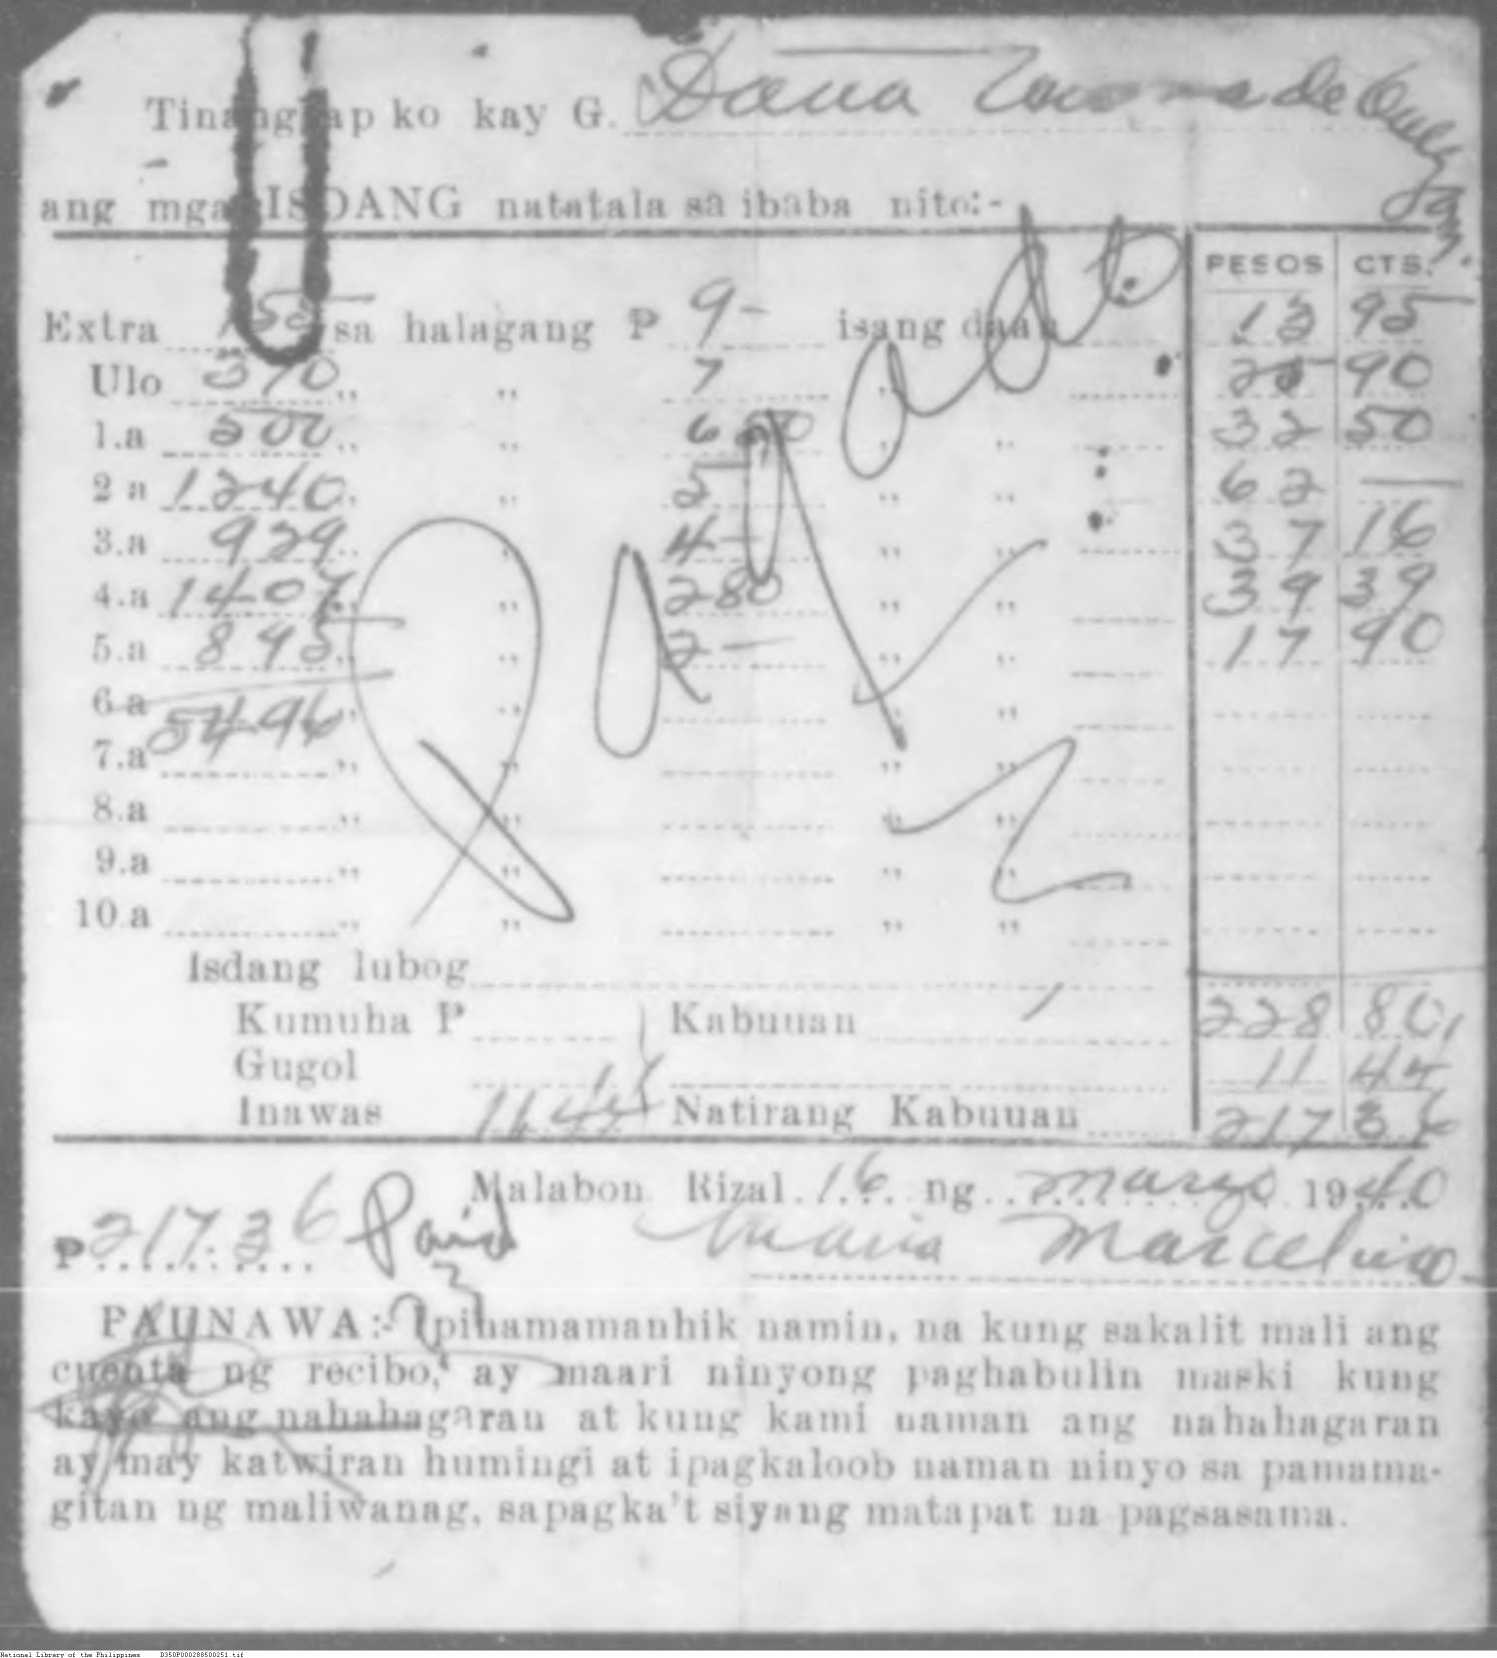 Tinanggap ko kay G. Doña de Quezon.
ang mga ISDANG natatala sa ibaba nito:-
PESOS CTS.
Extra 155 sa halagang ₱ 9- isang daan 13 95
Ulo 370 ,, ,, 7 ,, ,, 25 90
1.a 500 ,, ,, 6 50 ,, ,, 32 50
2 a 1240 ,, ,, 5- ,, ,, 62 —
3.a 929 ,, ,, 4- ,, ,, 37 16
4.a 1407 ,, ,, 280 ,, ,, 39 39
5.a 895 ,, ,, 2 — ,, ,, 17 90
6 a 5496 ,, ,, ,, ,,
7.a ,, ,, ,, ,,
8.a ,, ,, ,, ,,
9.a ,, ,, ,, ,,
10.a ,, ,, ,, ,,
Isdang lubog
Kumuha P Kabuuan 228 80
Gugol 11 44
Inawas 11.44 Natirang Kabuuan 217 36
Malabon Rizal 16 ng marzo 1940
₱ 217.36 Paid Maria Marcelino
PAUNAWA:- Ipinamamanhik namin, na kung sakalit mali ang
cuenta ng recibo, ay maari ninyong paghabulin maski kung
kayo ang nahahagaran at kung kami naman ang nahahagaran
ay may katwiran humingi at ipagkaloob naman ninyo sa pamama-
gitan ng maliwanag, sapagka't siyang matapat na pagsasama.
National Library of the Philippines D350P000288500251.tif